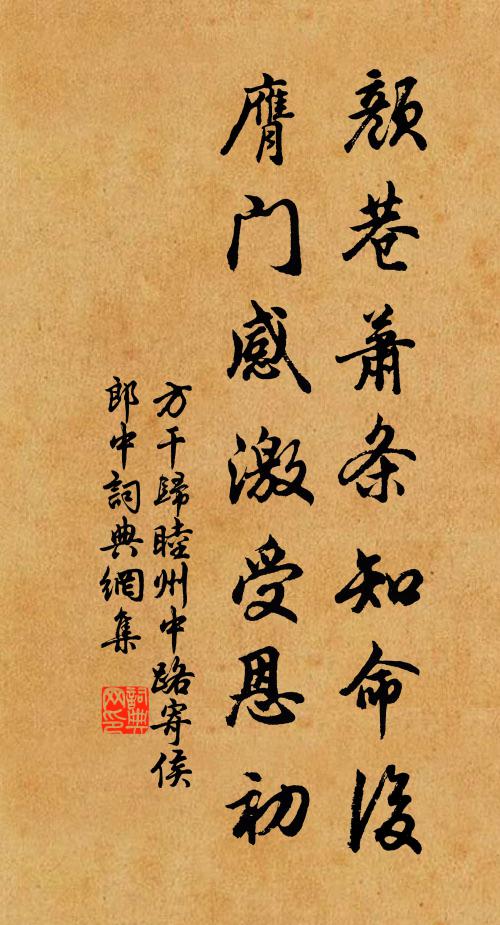 顏巷蕭条知命後
膺門感激受恩初
方干歸睦州中路寄侯
郎中詞典網集
詞典网印